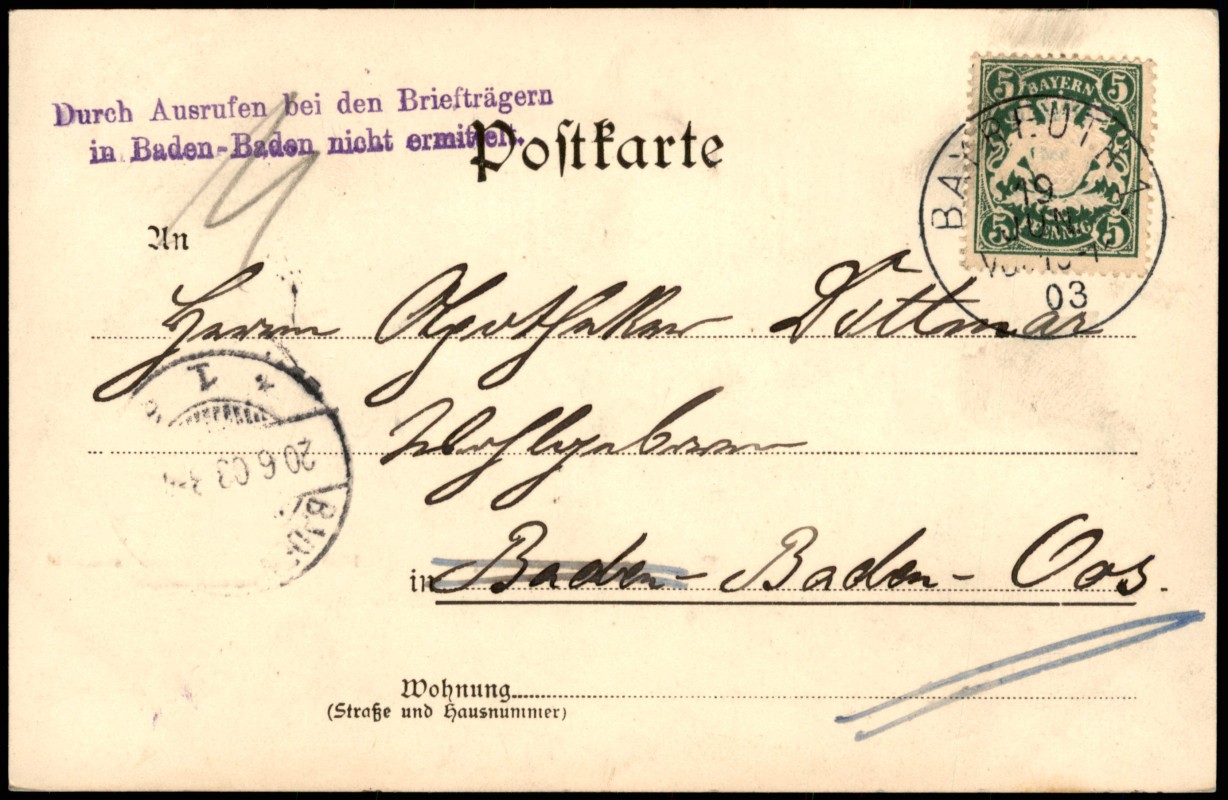 Durch Ausrufen bei den Briefträgern
in Baden-Baden nicht ermittelt.
Postkarte
5 BAYERN 5
5 PFENNIG 5
BAYREUTH 1
19
JUN
03
An
Herrn Apotheker Dittmar
Wohlgeboren
in Baden-Baden-Oos.
20 6 03
1
Wohnung
(Straße und Hausnummer)